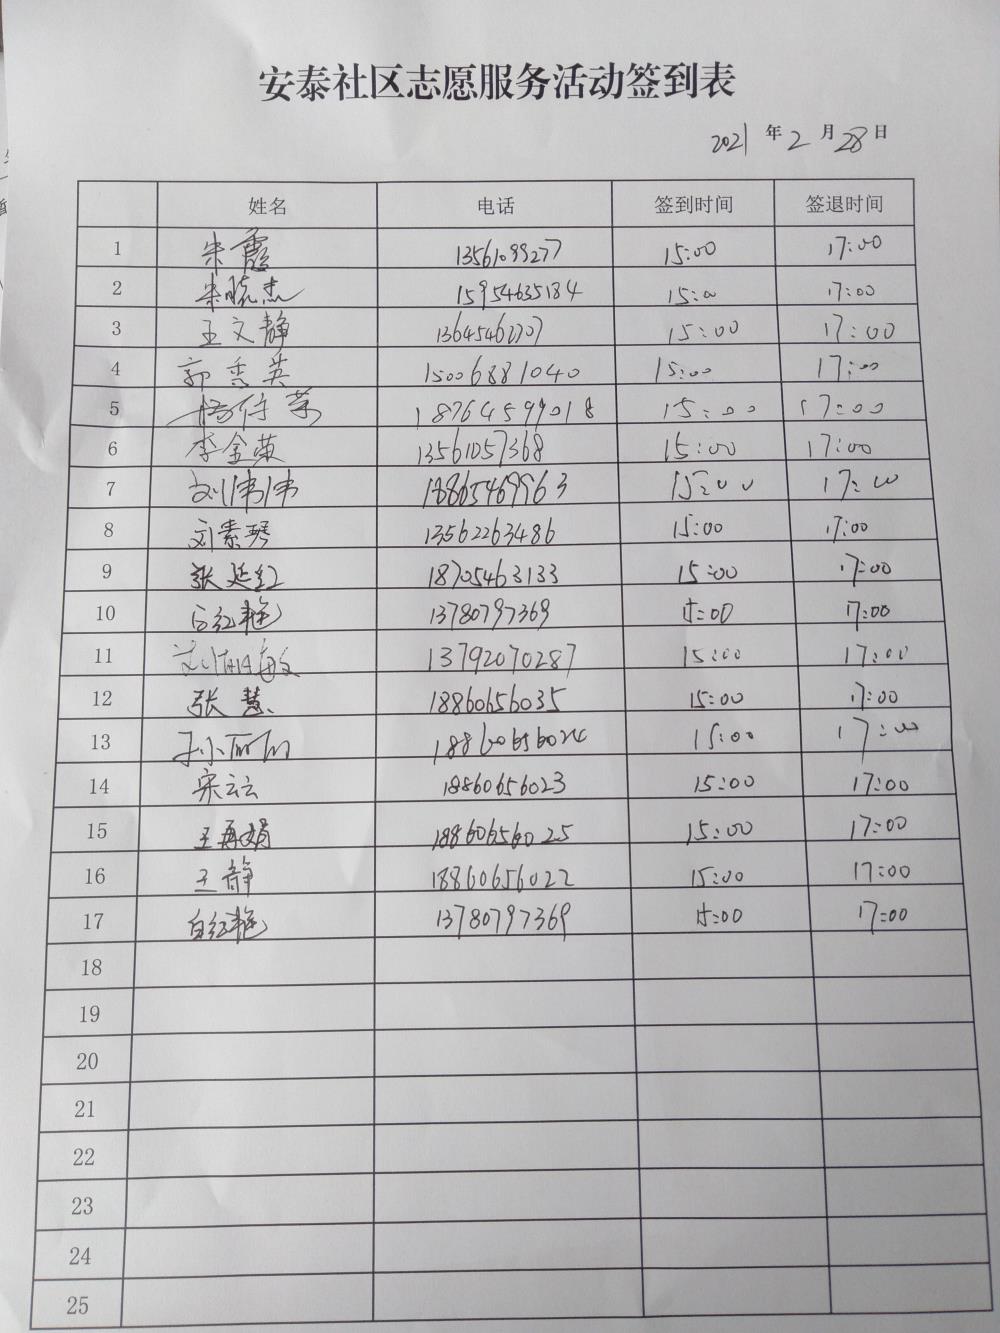 安泰社区志愿服务活动签到表
2021 年 2 月 28 日
姓名 电话 签到时间 签退时间
1 宋霞 13561099277 15:00 17:00
2 宋晓杰 15954635184 15:00 17:00
3 王文静 13645462707 15:00 17:00
4 郭秀英 15006881040 15:00 17:00
5 18764599018 15:00 17:00
6 李金荣 13561057368 15:00 17:00
7 刘伟伟 18865469963 15:00 17:00
8 刘素琴 13562263486 15:00 17:00
9 张延红 18705463133 15:00 17:00
10 白红艳 13780797369 15:00 17:00
11 刘相敏 13792070287 15:00 17:00
12 张慧 18860656035 15:00 17:00
13 孙小丽 15:00 17:00
14 宋云云 18860656023 15:00 17:00
15 王再娟 18860656025 15:00 17:00
16 王静 18860656022 15:00 17:00
17 白红艳 13780797369 15:00 17:00
18
19
20
21
22
23
24
25